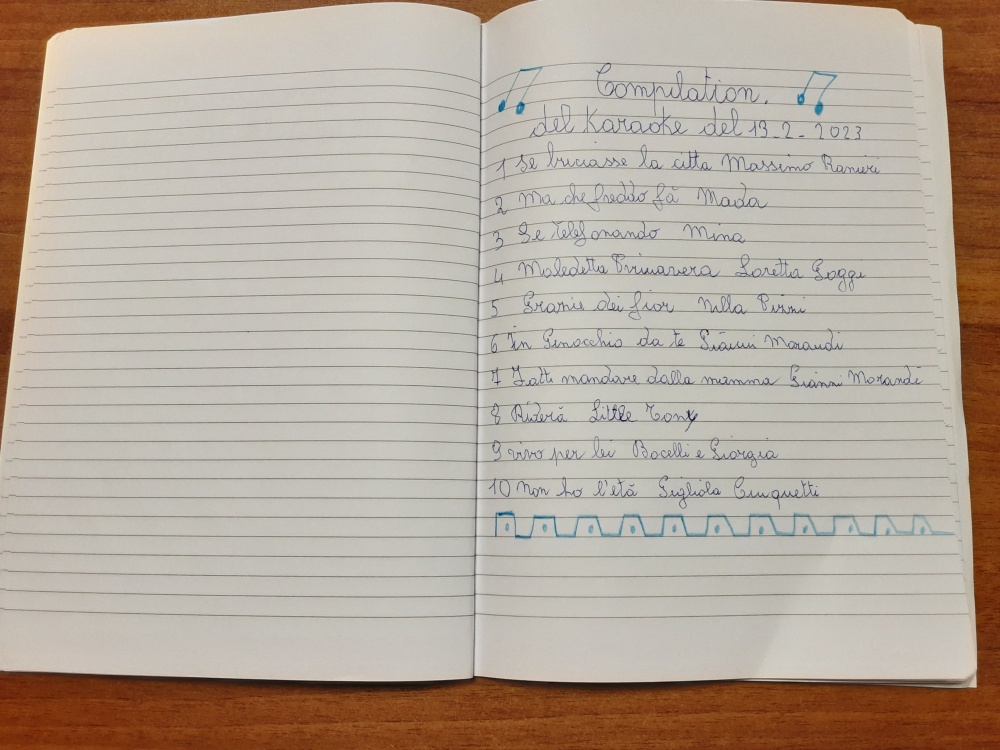 Compilation.
del Karaoke del 13-2-2023
1 Se bruciasse la città Massimo Ranieri
2 Ma che freddo fà Mada
3 Se telefonando Mina
4 Maledetta Primavera Loretta Goggi
5 Grazie dei fior Nilla Pizzi
6 In Ginocchio da te Gianni Morandi
7 Fatti mandare dalla mamma Gianni Morandi
8 Riderà Little Tony
9 vivo per lei Bocelli e Giorgia
10 Non ho l'età Gigliola Cinquetti